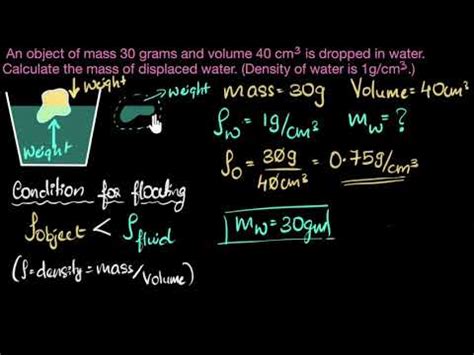 An object of mass 30 grams and volume 40 cm³ is dropped in water.
Calculate the mass of displaced water. (Density of water is 1g/cm³.)
weight
weight
weight
mass = 30g Volume = 40cm³
ρw = 1g/cm³ mw = ?
ρo = 30g/40cm³ = 0.75g/cm³
Condition for floating
ρobject < ρfluid
(ρ = density = mass/volume)
mw = 30gm